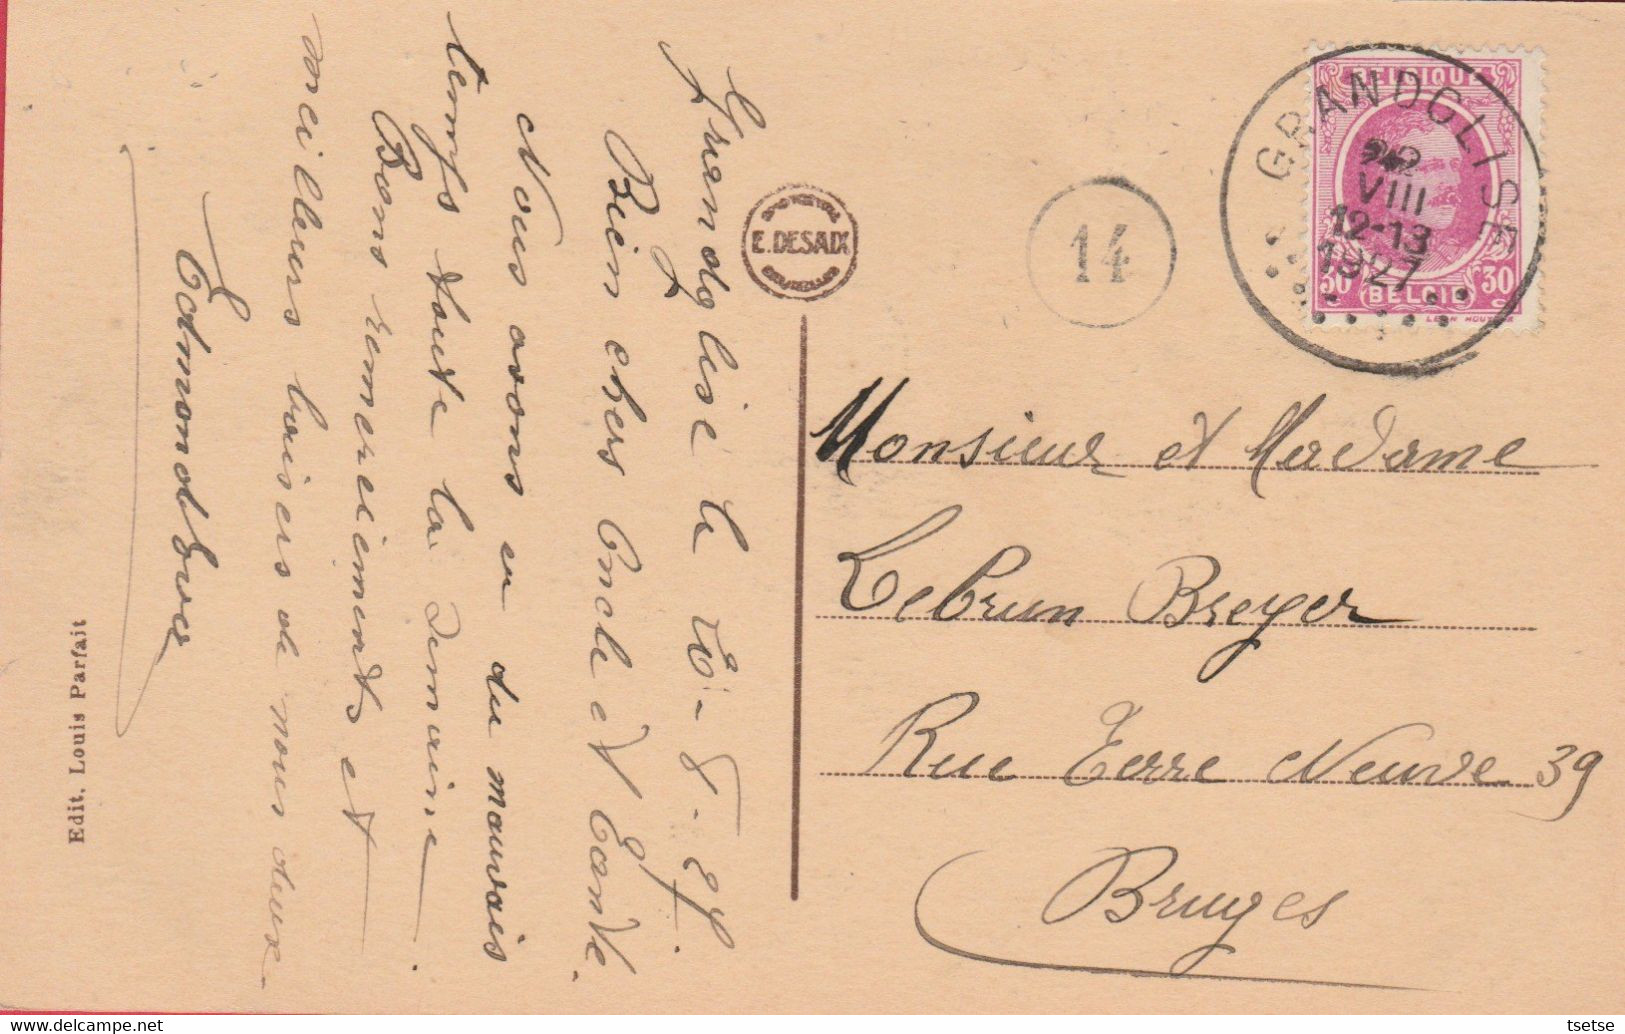 Grandglise le 20-8-27
Bien chers Oncle et Tante.
Nous avons eu du mauvais
temps toute la semaine
Bons remerciements et
meilleurs baisers de nous deux.
Edmond
Edit. Louis Parfait
E. DESAIX
14
GRANDGLISE
VIII
12-13
1927
BELGIQUE
30 BELGIË 30
Monsieur et Madame
Lebrun Breyer
Rue Terre Neuve 39
Bruges
tsetse